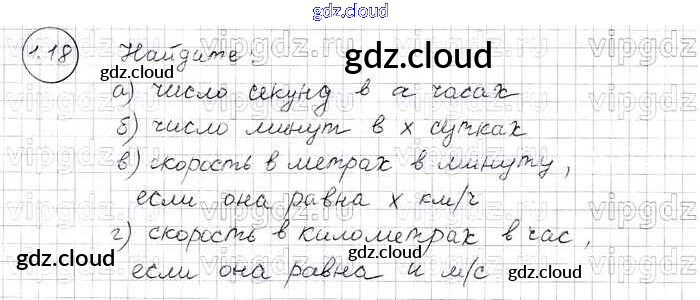 gdz.cloud
1.18 Найдите:
gdz.cloud
gdz.cloud
а) число секунд в a часах
б) число минут в x сутках
в) скорость в метрах в минуту,
если она равна x км/ч
г) скорость в километрах в час,
gdz.cloud
если она равна и м/с
gdz.cloud
gdz.cloud
vipgdz.ru